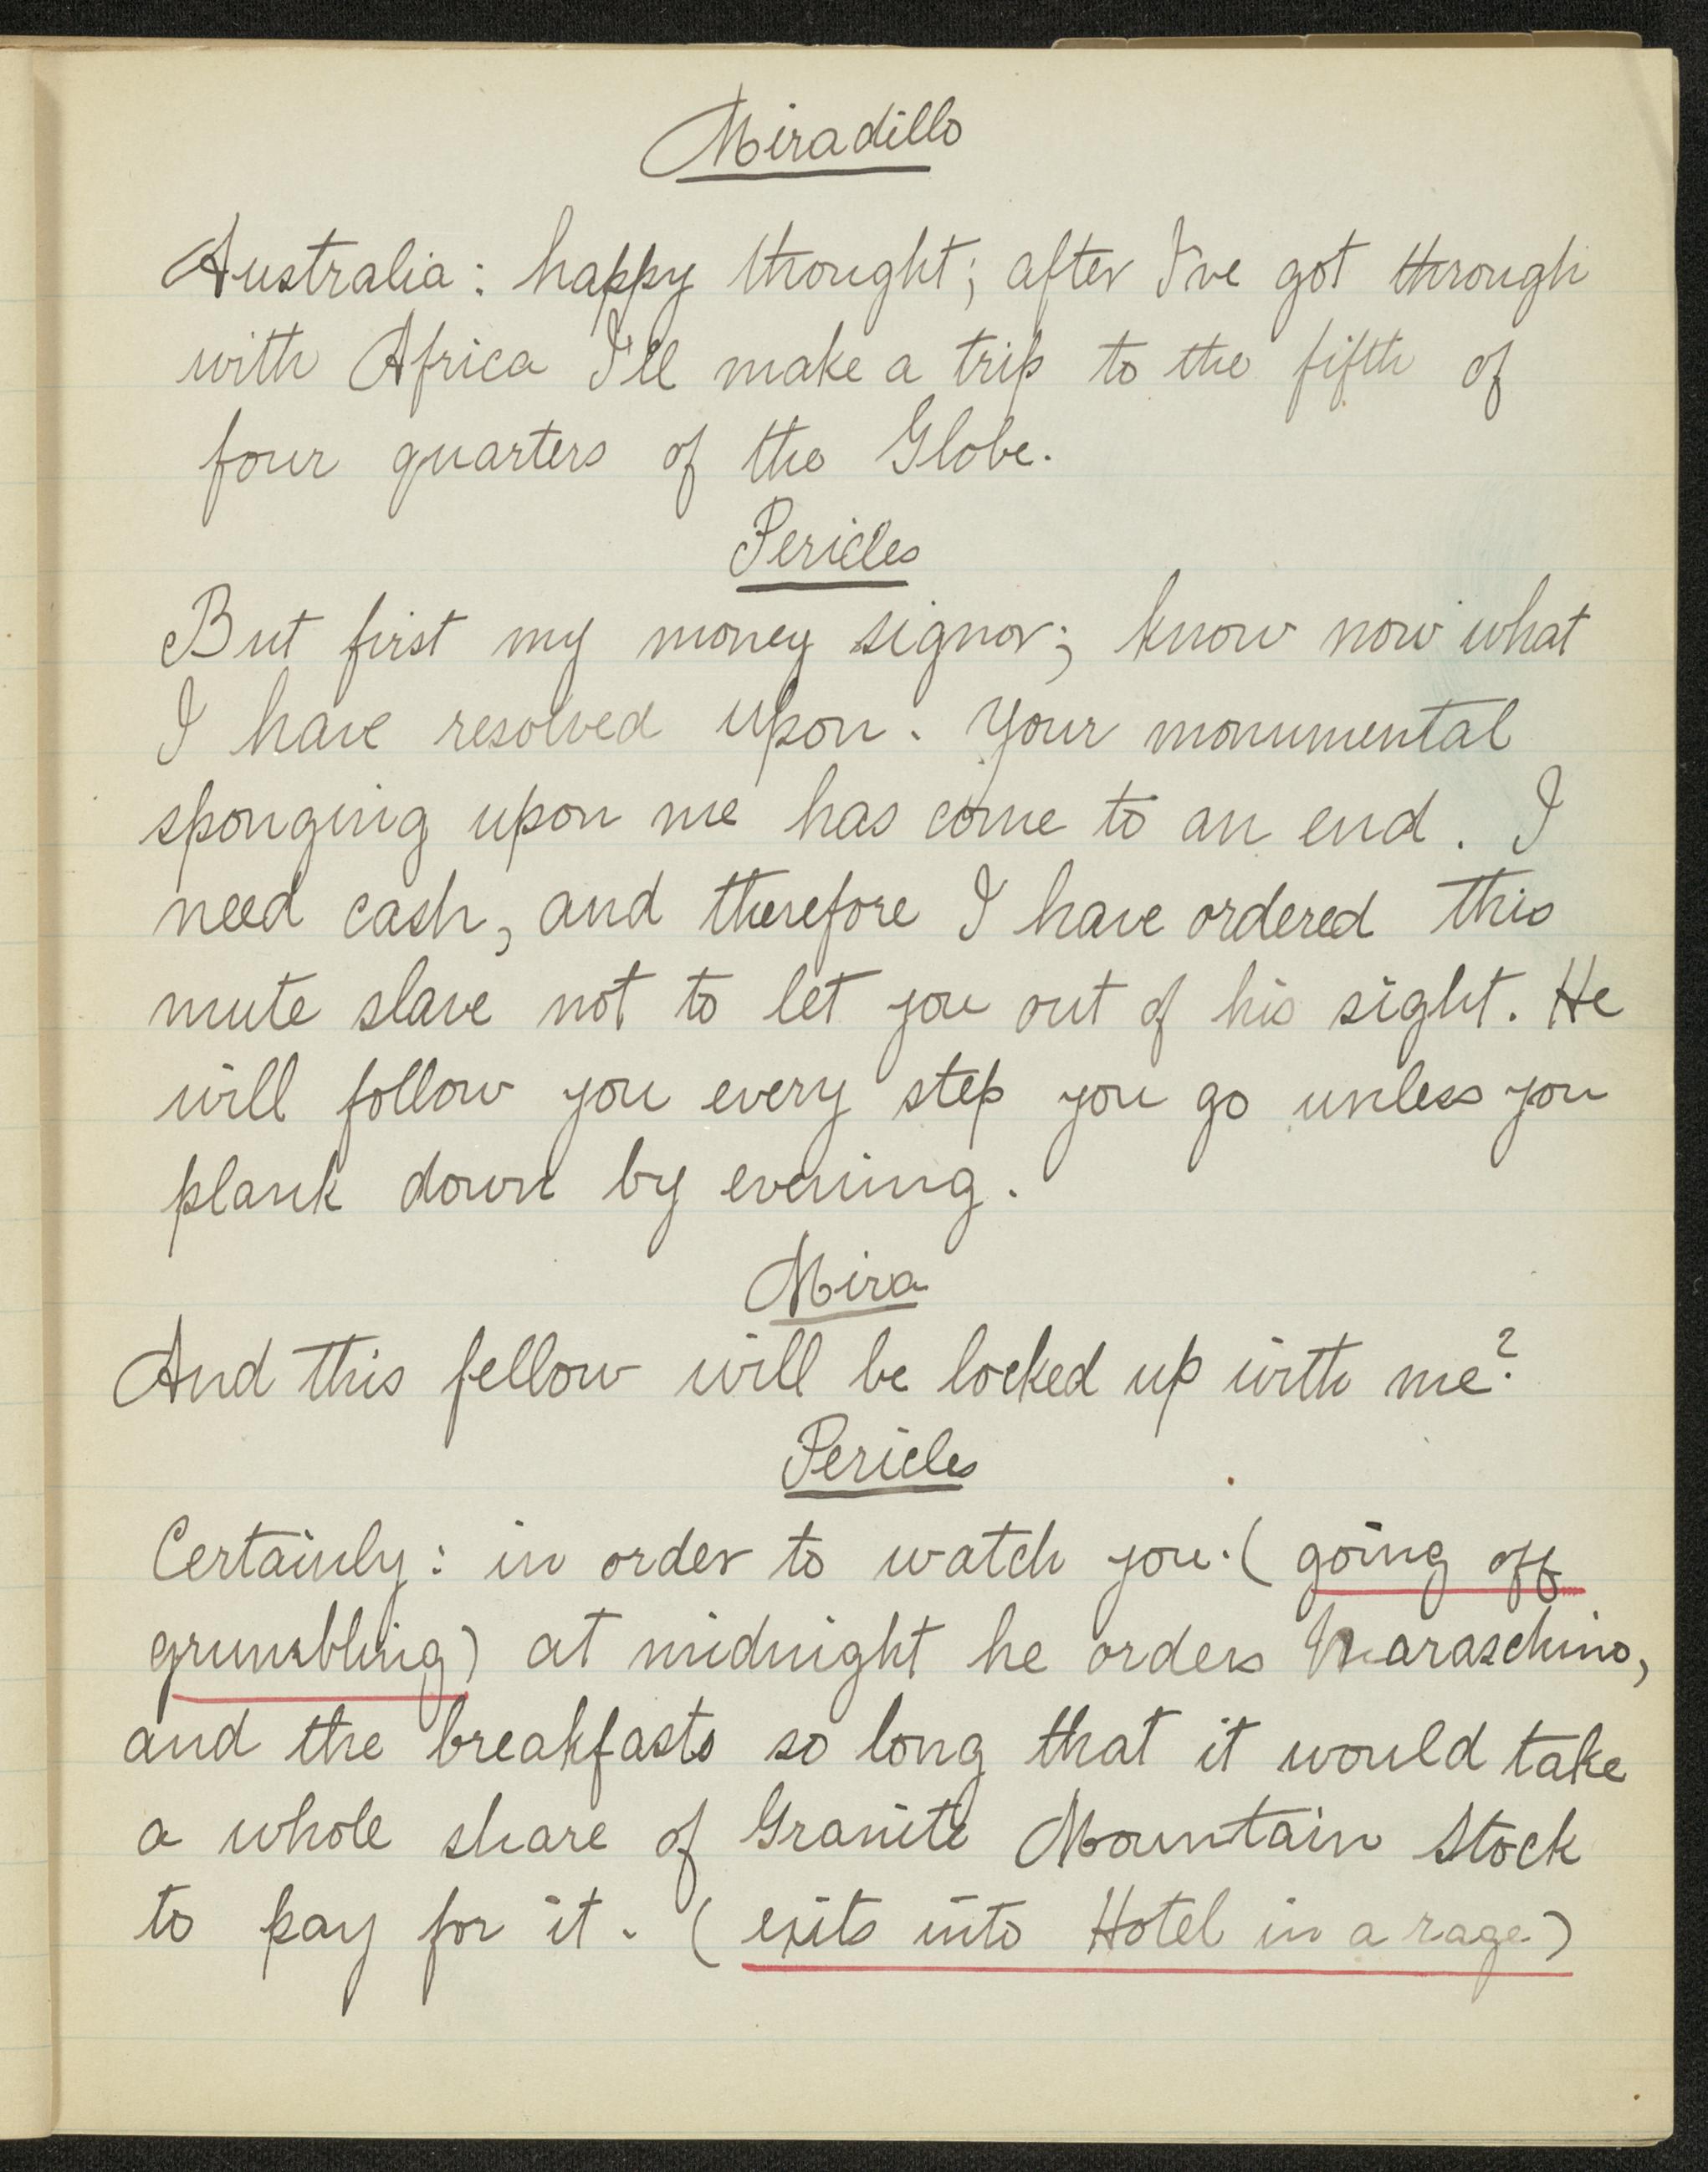 Miradillo
Australia: happy thought; after I've got through
with Africa I'll make a trip to the fifth of
four quarters of the Globe.
Pericles
But first my money signor; know now what
I have resolved upon. Your monumental
sponging upon me has come to an end. I
need cash, and therefore I have ordered this
mute slave not to let you out of his sight. He
will follow you every step you go unless you
plank down by evening.
Mira
And this fellow will be locked up with me?
Pericles
Certainly: in order to watch you. (going off
grumbling) at midnight he orders Maraschino,
and the breakfasts so long that it would take
a whole share of Granite Mountain Stock
to pay for it. (exits into Hotel in a rage)